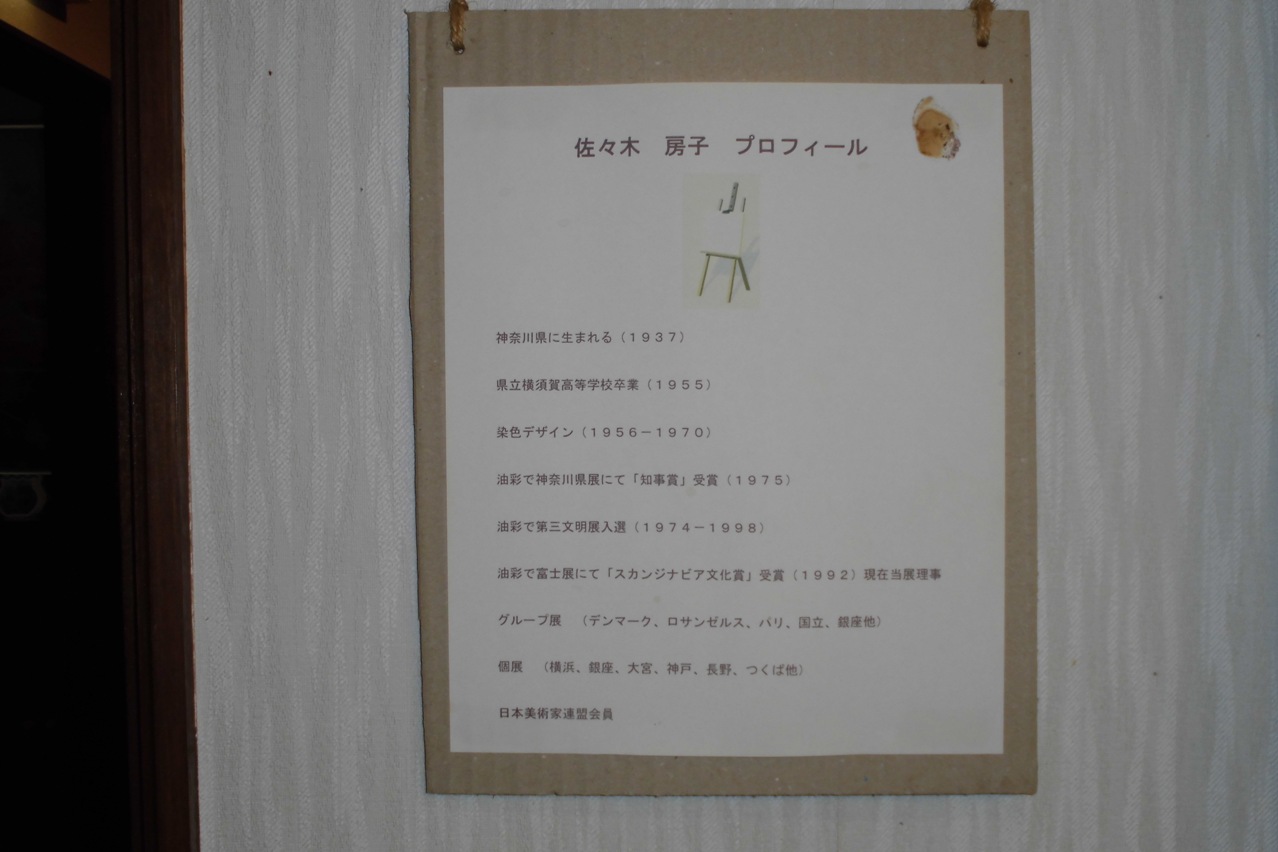 佐々木　房子　プロフィール
神奈川県に生まれる（１９３７）
県立横須賀高等学校卒業（１９５５）
染色デザイン（１９５６－１９７０）
油彩で神奈川県展にて「知事賞」受賞（１９７５）
油彩で第三文明展入選（１９７４－１９９８）
油彩で富士展にて「スカンジナビア文化賞」受賞（１９９２）現在当展理事
グループ展　（デンマーク、ロサンゼルス、パリ、国立、銀座他）
個展　（横浜、銀座、大宮、神戸、長野、つくば他）
日本美術家連盟会員